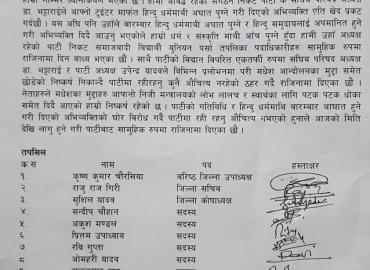 डा. भट्टराईले आफ्नो टुइटर मार्फत हिन्दु धर्ममाथी अघात पुग्ने गरी दिएको अभिव्यक्ति प्रति खेद प्रकट
गर्दछौं । यस अघि पनि उहाँले बारम्बार हिन्दु धर्ममाथी अघात पुग्ने र हिन्दु समुदायलाई अपमानित हुने
गरी अभिव्यक्ति दिदै आउनु भएकोले हाम्रो धर्म र संस्कृति मायी आंच पुग्ने हुँदा हामी उहाँ अध्यक्ष
रहेको पार्टी निकट समाजवादी विद्यार्थी युनियन पर्सा तपलका पदाधिकारीहरु सामुहिक रुपमा
राजिनामा दिन बाध्य भएका छौ । साथै पार्टीको विधान विपरित एकतर्फी रुपमा संघिय परिषद अध्यक्ष
डा. भट्टराई र पार्टी अध्यक्ष उपेन्द्र यादवले विभिन्न प्रलोभनमा परी मधेश आन्दोलनका मुद्दा समेत
छोडेको निष्कर्ष निकाल्दै पार्टीमा रहीरहनु कुनै औचित्य नरहेको ठहर गर्दै राजिनामा दिएका छौ ।
नेताहरुले मधेशका मुद्दाहरु आफ्नो निजी मन्त्रालयको लोभ लालच र स्वार्थका लागि पटक पटक धोका
समेत दिदै आएको हाम्रो निष्कर्ष रहेको छ । पार्टीको गतिविधि र हिन्दु धर्ममाथि बारम्बार आघात हुने
गरी दिएको अभिव्यक्तिको घोर विरोध गर्दै पार्टीमा रही रहनु औचित्य नभएको हुनाले आजको मिति
देखि लागु हुने गरी पार्टीबाट सामुहिक रुपमा राजिनामा दिएका छौ ।
तपसिल
क.स नाम पद हस्ताक्षर
१. कृष्ण कुमार चौरसिया वरिष्ठ जिल्ला उपाध्यक्ष
२. राजु राज गिरी जिल्ला सचिव
३. सुशिल यादव जिल्ला कोषाध्यक्ष
४ सन्दीप चौहान सदस्य
५ अकुश मण्डल सदस्य
६ प्रितम उपाध्याय सदस्य
७ रवि गुप्ता सदस्य
८ ओमहरी यादव सदस्य